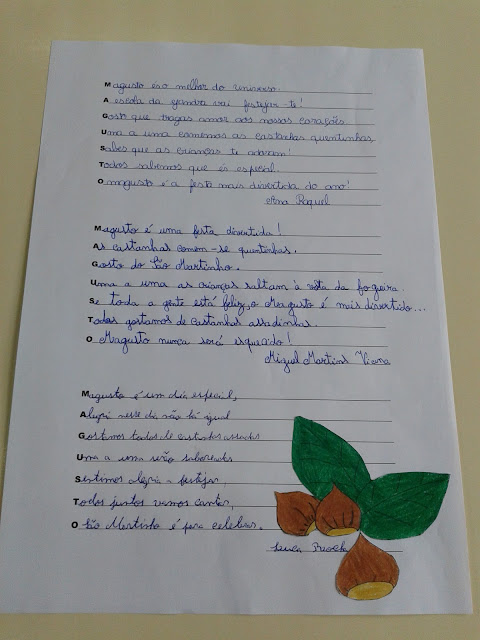 Magusto és o melhor do universo.
A escola da Gandra vai festejar-te!
Gosto que tragas amor aos nossos corações
Uma a uma comemos as castanhas quentinhas,
Sabes que as crianças te adoram!
Todos sabemos que és especial.
O magusto é a festa mais divertida do ano!
Ana Raquel
Magusto é uma festa divertida!
As castanhas comem-se quentinhas.
Gosto do São Martinho.
Uma a uma as crianças saltam à volta da fogueira.
Se toda a gente está feliz, o Magusto é mais divertido...
Todos gostamos de castanhas assadinhas.
O Magusto nunca será esquecido!
Miguel Martins Viana
Magusto é um dia especial,
Alegri nesse dia não há igual
Gostamos todos de castanhas assadas
Uma a uma serão saboreadas
Sentimos alegria a festejar,
Todos juntos vamos cantar,
O São Martinho é para celebrar.